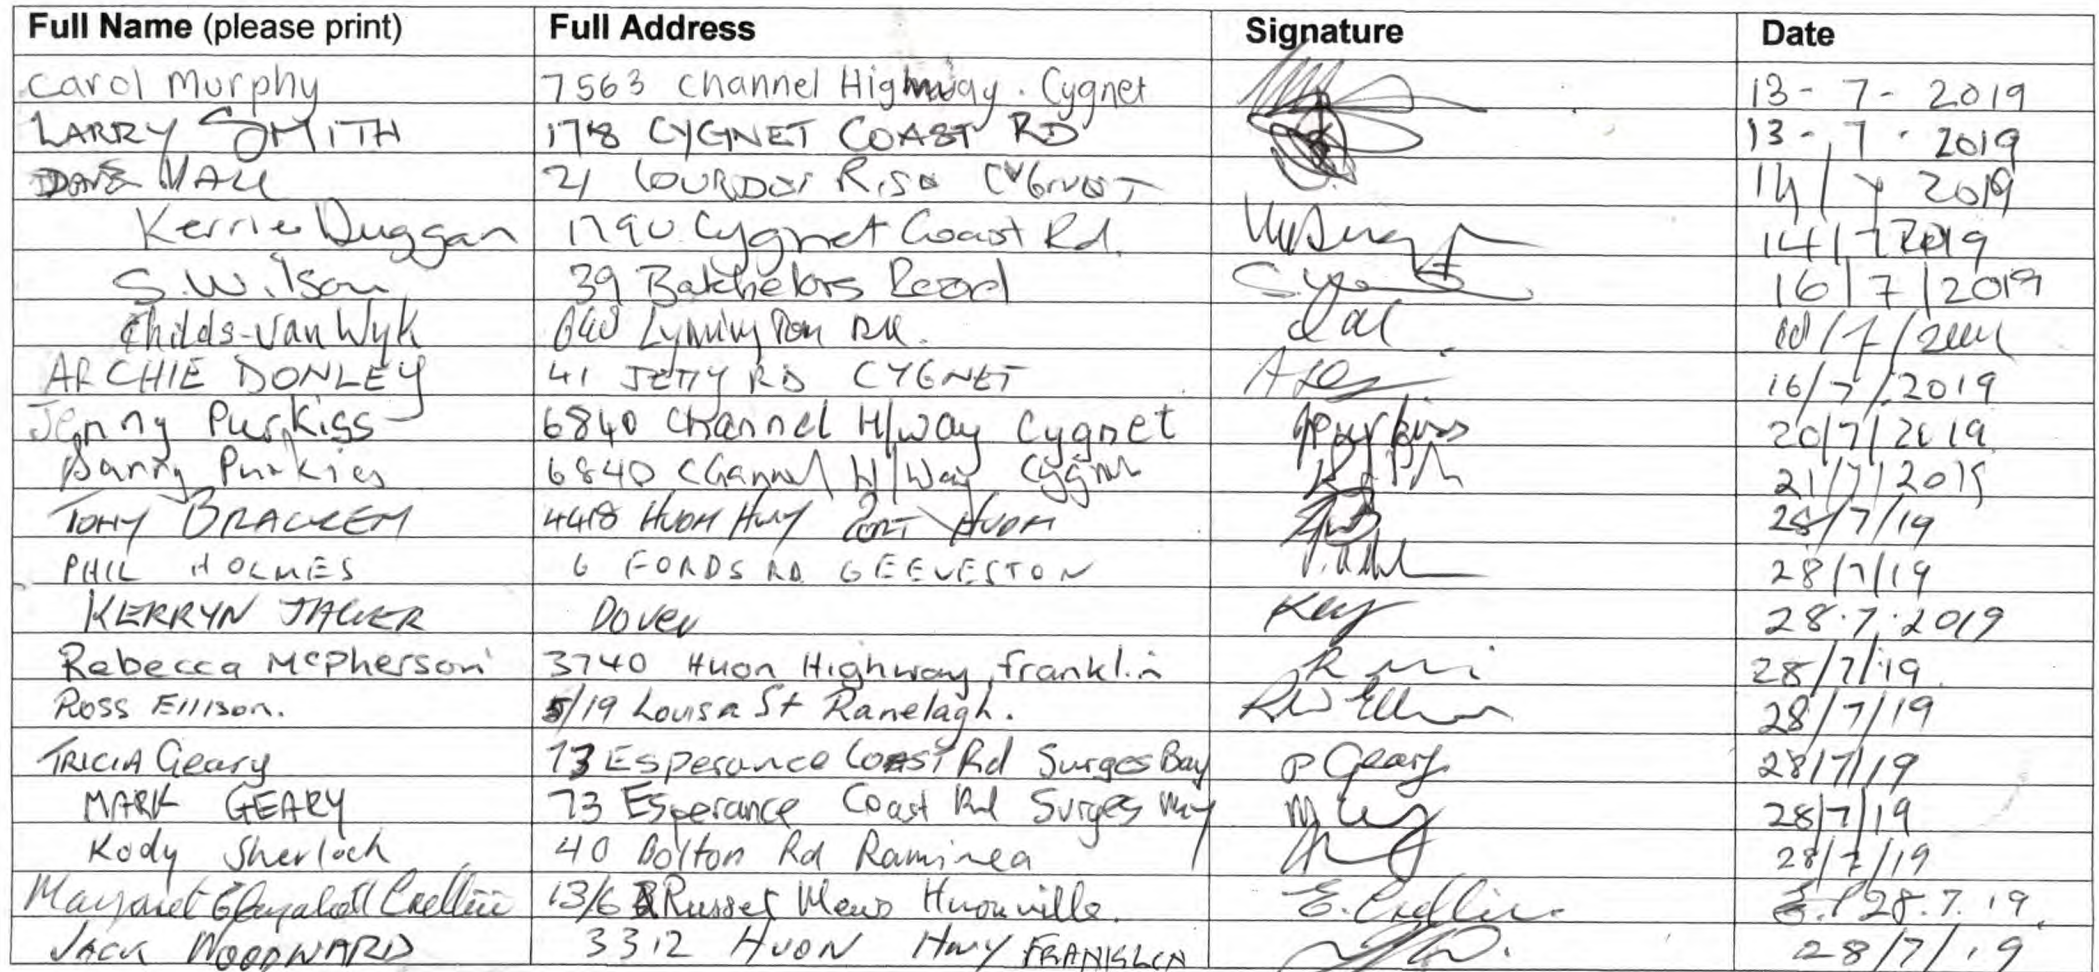 Full Name (please print) Full Address Signature Date
Carol Murphy 7563 Channel Highway. Cygnet 13-7-2019
LARRY SMITH 1718 CYGNET COAST RD 13-7-2019
DAVE HALL 21 LOURDES RISE CYGNET 14/7 2019
Kerrie Duggan 1790 Cygnet Coast Rd. 14/7 2019
S. Wilson 39 Batchelors Road 16/7/2019
Childs-Van Wyk 640 Lymington Rd. /7/
ARCHIE DONLEY 41 JETTY RD CYGNET 16/7/2019
Jenny Purkiss 6840 Channel H/way Cygnet JPurkiss 20/7/2019
Danny Purkiss 6840 Channel H/Way Cygnet 21/7/2019
TONY BRACKEN 4418 HUON HWY PORT HUON 28/7/19
PHIL HOLMES 6 FORDS RD GEEVESTON 28/7/19
KERRYN JAGER Dover Key 28.7.2019
Rebecca McPherson 3740 Huon Highway, franklin 28/7/19
Ross Ellison. 5/19 Louisa St Ranelagh. RW Ellison 28/7/19
TRICIA Geary 73 Esperance COAST Rd Surges Bay P Geary 28/7/19
MARK GEARY 73 Esperance Coast Rd Surges Bay 28/7/19
Kody Sherlock 40 Bolton Rd Raminea 28/7/19
Margaret Elizabeth Crellin 13/6 Russet Mews Huonville. E. Crellin. 28.7.19.
JACK WOODWARD 3312 HUON HWY FRANKLIN 28/7/19